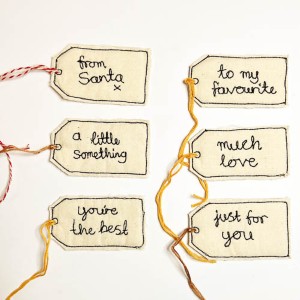 from
Santa
x
to my
favourite
a little
something
much
love
you're
the best
just for
you